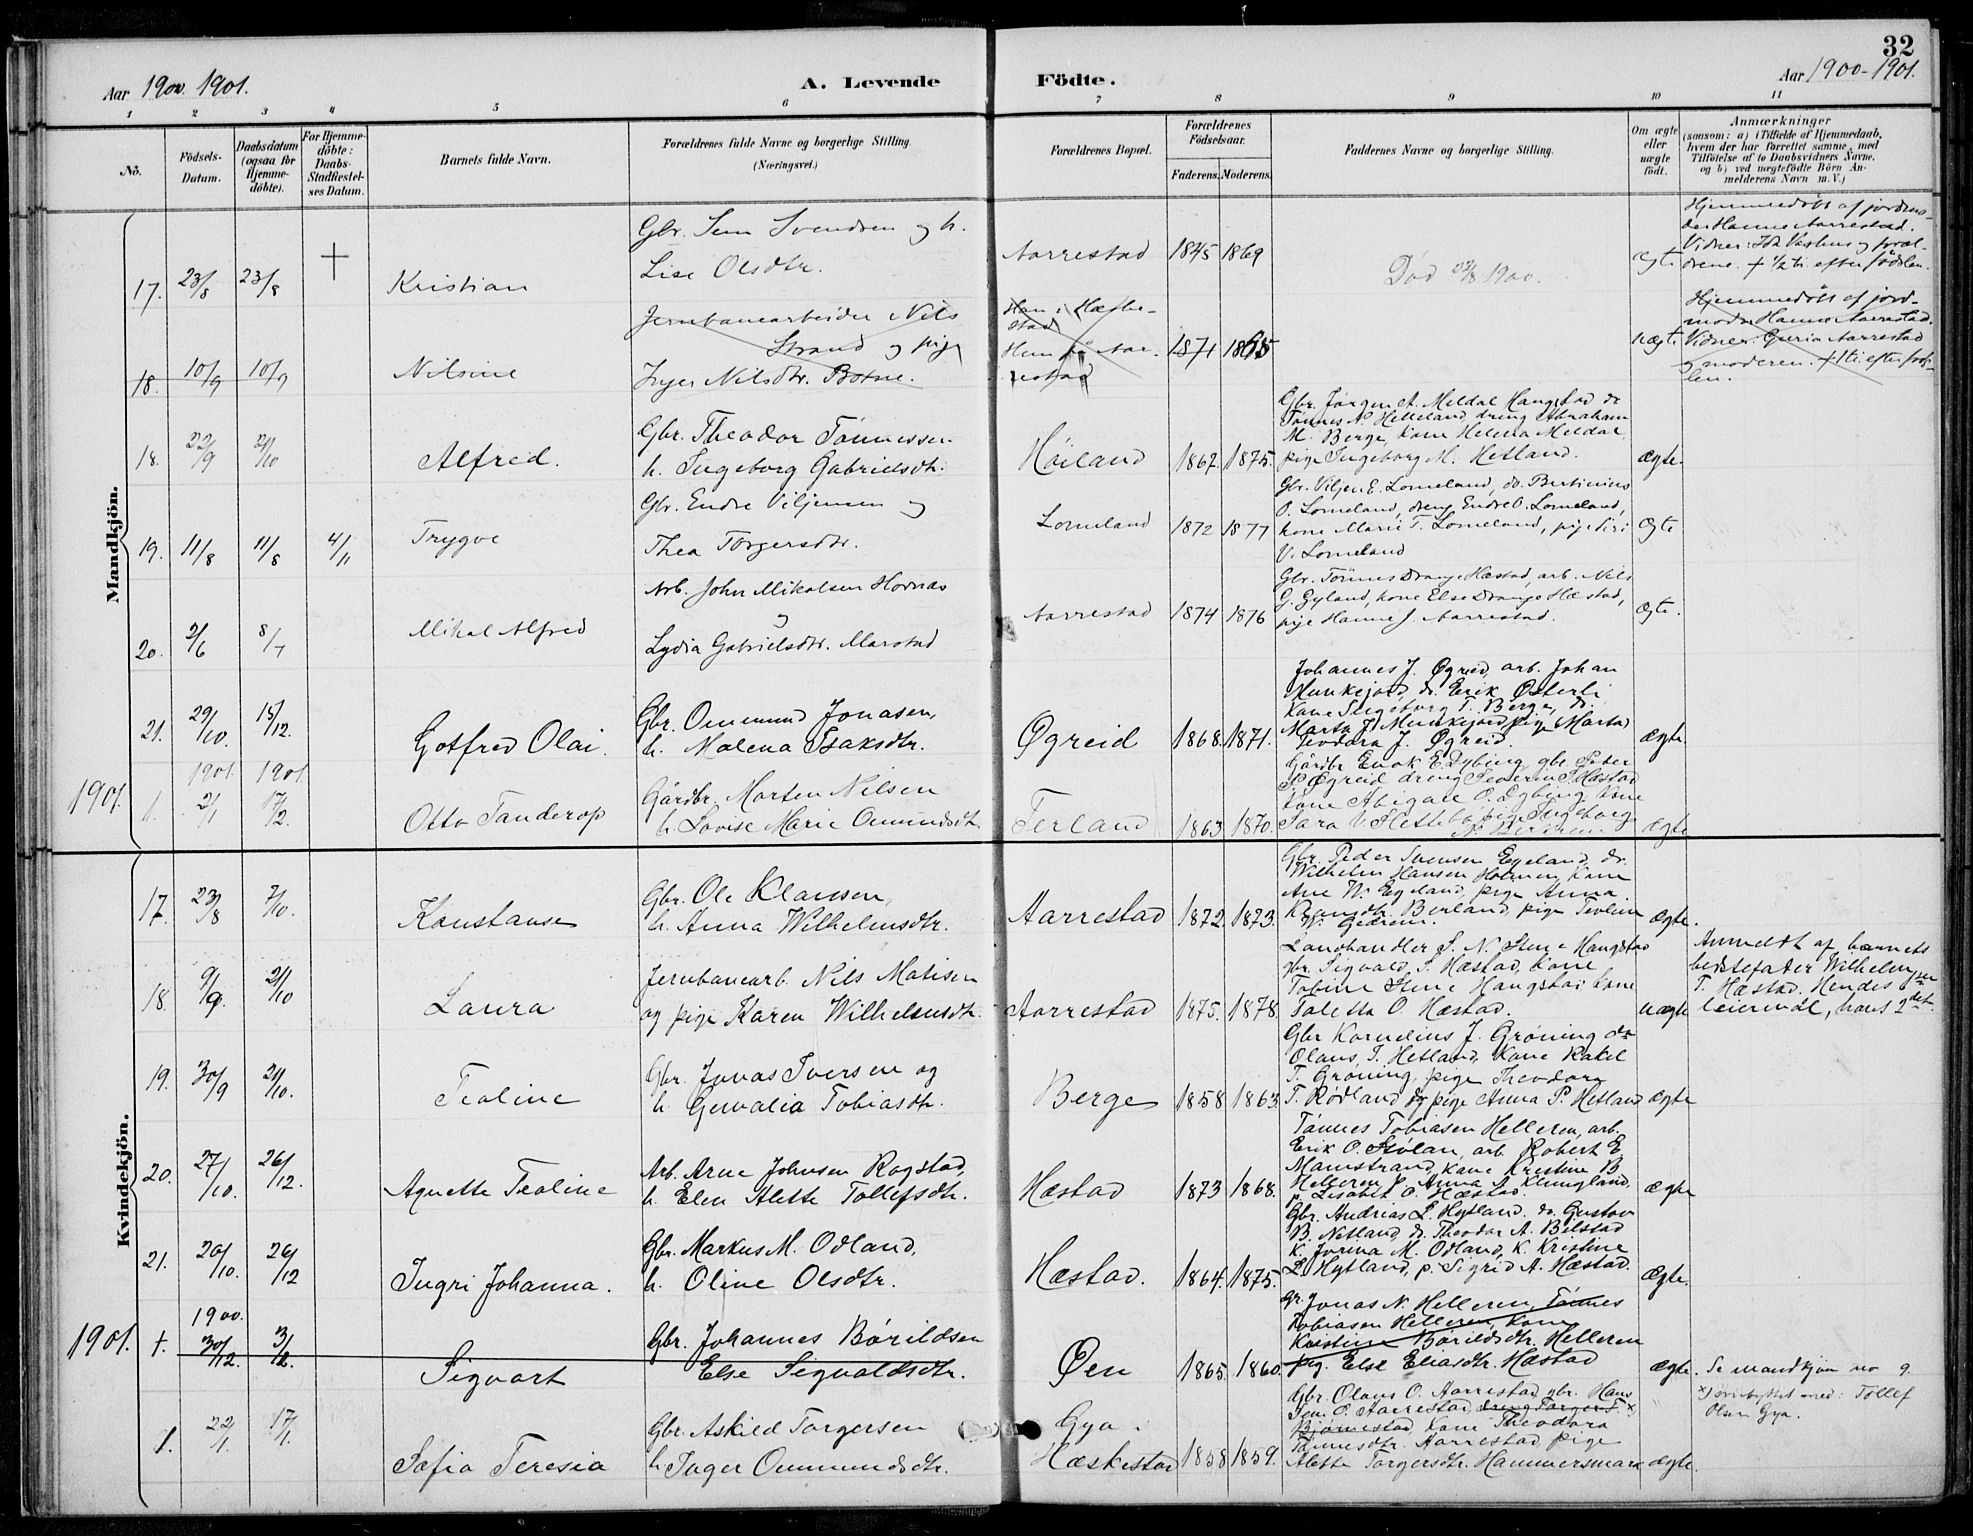 32
Aar 1900. 1901.
A. Levende Födte.
Aar 1900-1901.
1 2 3 4 5 6 7 8 9 10 11
No.
Födsels-Datum.
Daabsdatum (ogsaa for Hjemme-döbte).
For Hjemme-döbte: Daabs-Stadfæstel-ses Datum.
Barnets fulde Navn.
Forældrenes fulde Navne og borgerlige Stilling.
(Næringsvei.)
Forældrenes Bopæl.
Forældrenes Födselsaar.
Faderens. Moderens.
Faddernes Navne og borgerlige Stilling.
Om ægte eller uægte födt.
Anmærkninger
(saasom: a) i Tilfælde af Hjemmedaab,
hvem der har forrettet samme, med
Tilföielse af to Daabsvidners Navne,
og b) ved uægtefödte Börn An-
melderens Navn m. V.)
Mandkjön.
17. 23/8 23/8 + Kristian
Gbr. Svendsen og h.
Lise Olsdtr.
Aarrestad 1845 1869
Død 23/8 1900.
ægte
Hjemmedöbt af jordmo-
der Hanne Aarrestad.
Vidner: og foræl-
drene. + 1/2 ti. efter födslen.
18. 10/9 10/9 Nilsine
Jernbanearbeider Nils
Strand og pige
Inger Nilsdtr. Botne.
Han: Hæske-
stad
Hun på Aar-
restad
1871
uægte
Hjemmedöbt af jord-
moder Hanne Aarrestad.
Vidner: Guria Aarrestad
og moderen. + 1 ti. efter föds-
len.
18. 22/9 21/10 Alfred.
Gbr. Theodor Tönnessen
h. Ingeborg Gabrielsdtr.
Höiland 1867. 1875.
Gbr. Jörgen A. Meldal Haugstad do
Tönnes A. Helleland, dreng Abraham
M. Berge, kone Helena Meldal,
pige Ingeborg M. Hetland.
ægte.
19. 11/8 11/8 4/11 Trygve
Gbr. Endre Viljensen og
Thea Torgersdtr.
Lomeland 1872 1877
Gbr. Viljen E. Lomeland, do. Bertinius
O. Lomeland, dreng Endre O. Lomeland,
kone Marie T. Lomeland, pige Siri
V. Lomeland
Ægte
20. 2/6 8/7 Mikal Alfred
Arb. John Mikalsen Hovnæs
og
Lydia Gabrielsdtr. Marstad
Aarrestad 1874 1876
Gbr. Tönnes Drange Hæstad, arb. Nils
G. Gyland, kone Else Drange Hæstad,
pige Hanne J. Aarrestad.
ægte.
21. 29/10. 15/12. Gotfred Olai.
Gbr. Ommund Jonasen,
h. Malena Isaksdtr.
Øgreid 1868. 1871.
Johannes J. Øgreid, arb. Johan
Munkejord, dr. Erik Österli
Kone Ingeborg T. Berge, do.
Marta J. Munkejord, pige Marta
Teodora J. Øgreid.
ægte.
1901.
1901. 1901.
1. 2/1 17/2. Otto Tanderop
Gårdbr. Morten Nilsen
h. Lovise Marie Omundsdtr.
Terland 1863 1870.
Gårdbr Enok E. Dybing, gbr. Peter
P. Øgreid dreng Severin S. Hæstad
Kone Abigael O. Dybing, Kone
Sara V. Sletteb pige Ingeborg
ægte
Kvindekjön.
17. 23/8 7/10. Konstanse
Gbr. Ole Klausen,
h. Anna Wilhelmsdtr.
Aarrestad 1872. 1873.
Gbr. Peder Svensen Egeland, dr.
Wilhelm Hansen Holmen, Kone
Ane W. Egeland, pige Anna
Rasmsdtr. Berland, pige Teoline
W. Gedrem.
ægte.
18. 9/9. 21/10 Laura
Jernbanearb. Nils Matisen
og pige Karen Wilhelmsdtr.
Aarrestad 1875. 1878.
Landhandler S. N. Stene Haugstad
gbr. Sigvald S. Hæstad, Kone
Tobine Stene Haugstad kone
Taletta O. Hæstad.
uægte
Anmeldt af barnets
bestefader Wilhelm
T. Hæstad. Hendes 1ste
leiermål, hans 2det.
19. 30/9 21/10. Teoline
Gbr. Jonas Iversen og
h. Gurvalia Tobiasdtr.
Berge 1858 1863.
Gbr Kornelius J. Gröning do
Olaus T. Hetland, Kone Rakel
T. Gröning, pige Theodora
T. Rødland og pige Anna P. Hetland
ægte
20. 27/10. 26/12. Agnette Teoline
Arb. Arne Johnsen Rogstad,
h. Elen Alette Tollefsdtr.
Hæstad 1873 1868.
Tönnes Tobiasen Helleren, arb.
Erik O. Stölan, arb Robert E.
Mamstrand, kone Kristine B
Helleren, p. Anna A. Klungland,
p. Lisabet O. Hæstad.
ægte
21. 20/10. 26/12 Ingri Johanna.
Gbr. Markus M. Odland,
h. Oline Olsdtr.
Hæstad. 1864. 1875.
Gbr. Andreas L. Hytland. do. Gustav
B. Netland, do. Theodor A. Bilstad
K. Jorina M. Odland, K. Kristine
L. Hytland, p. Sigrid A. Hæstad.
Ægte.
1901.
1900.
1. 30/12. 3/2. Sigvart
Gbr. Johannes Börildsen
Else Sigvaldsdtr.
Øen 1865. 1860.
Gr. Jonas N. Helleren, Tönnes
Tobiasen Helleren, kone
Kristine Börildsdtr. Helleren
pig. Else Eliasdtr. Hæstad
ægte.
Se mandkjön no 9.
1. 22/1. 17/1. Sofia Teresia
Gbr. Askild Torgersen
h. Inger Ommundsdtr.
Gya.
Hæskestad 1858 1859.
Gbr. Olaus O. Aarrestad, gbr. Hans
Jen. O. Aarrestad, dreng Torger T. x)
Bjørnestad, kone Theodora
Tönnesdtr. Aarrestad, pige
Alette Torgersdtr. Hammersmark
ægte.
x) ombyttet med: Tollef
Olsen Gya.